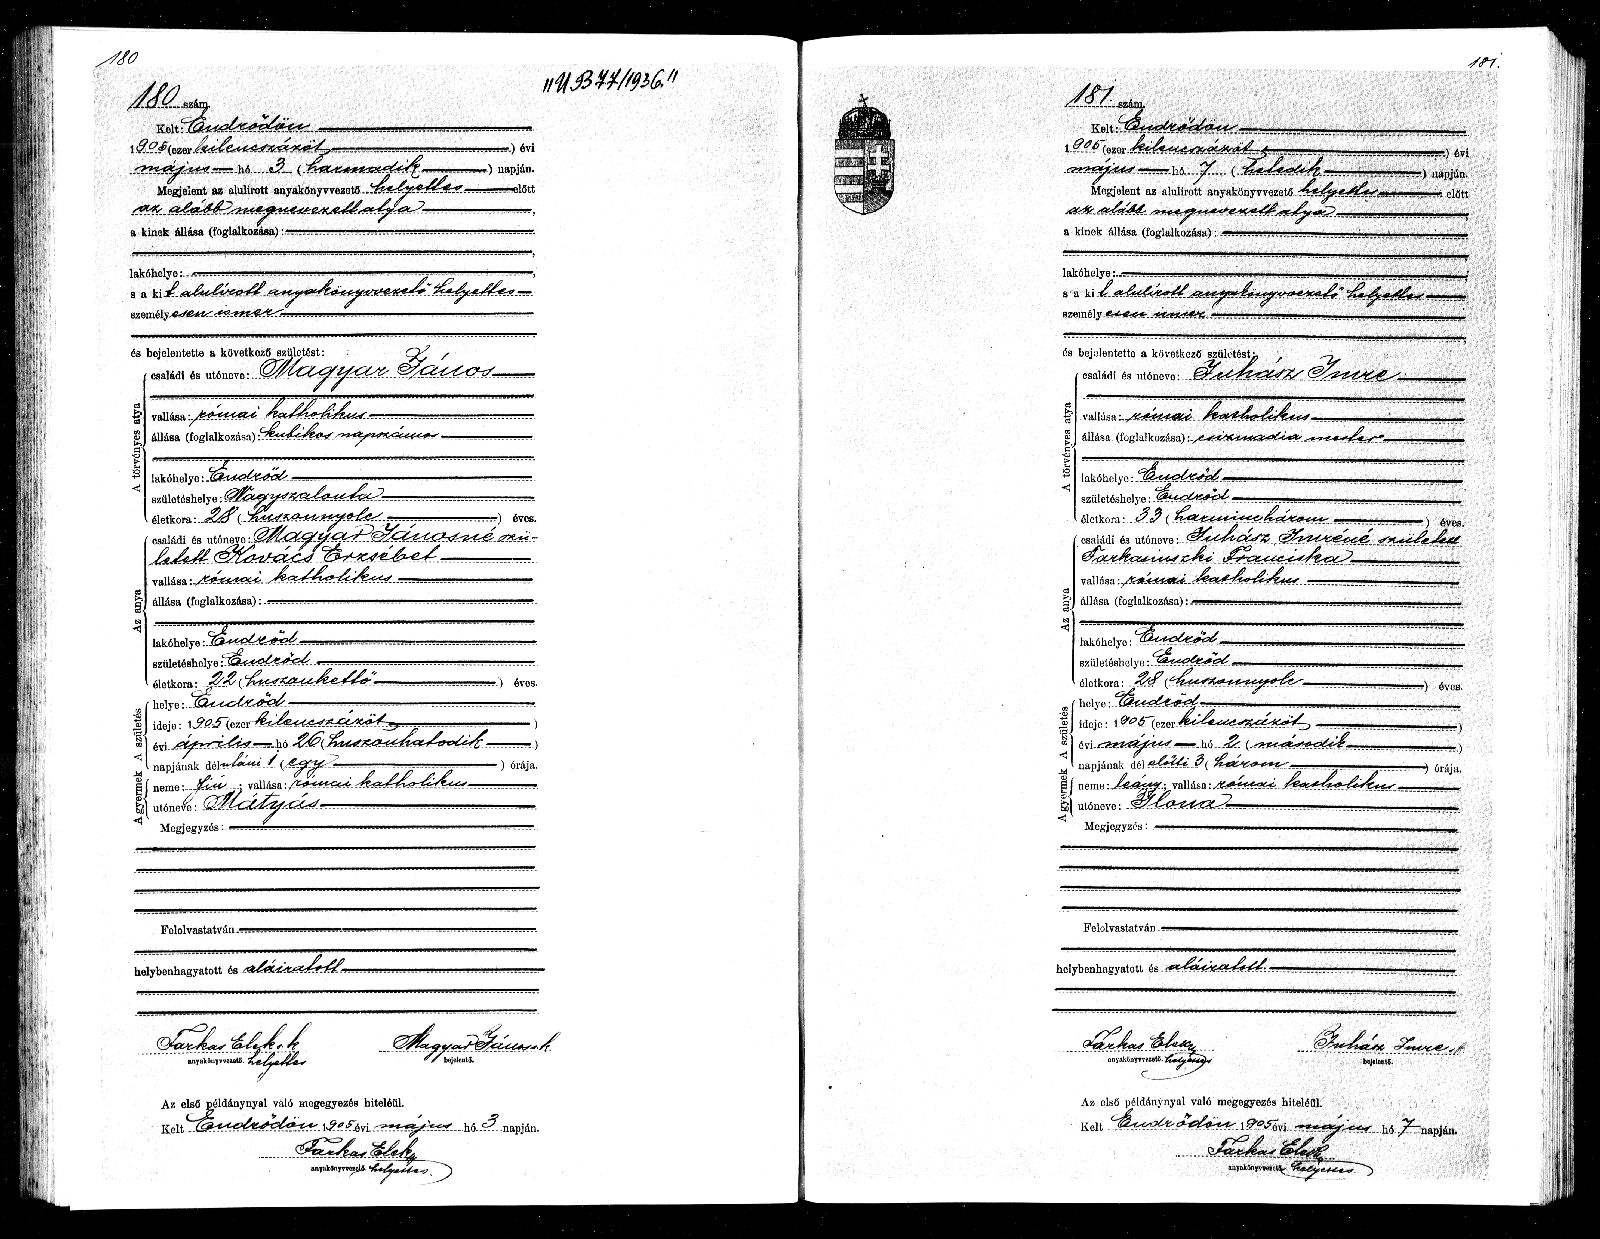 180
"U B 77/1936."
180 szám.
Kelt: Endrődön
1905 (ezer kilencszázöt) évi
május hó 3 (harmadik) napján.
Megjelent az alulirott anyakönyvvezető helyettes előtt
az alább megnevezett atya,
a kinek állása (foglalkozása):
lakóhelye:
s a kit alulírott anyakönyvvezető helyettes
személyesen ismer
és bejelentette a következő születést:
A törvényes atya
családi és utóneve: Magyar János
vallása: római katholikus
állása (foglalkozása): kubikos napszámos
lakóhelye: Endrőd
születéshelye: Nagyszalonta
életkora: 28 (huszonnyolc) éves.
Az anya
családi és utóneve: Magyar Jánosné szü-
letett Kovács Erzsébet
vallása: római katholikus
állása (foglalkozása):
lakóhelye: Endrőd
születéshelye: Endrőd
életkora: 22 (huszonkettő) éves.
A születés
helye: Endrőd
ideje: 1905 (ezer kilencszázöt)
évi április hó 26 (huszonhatodik)
napjának délutáni 1 (egy) órája.
A gyermek
neme: fiú; vallása: római katholikus
utóneve: Mátyás
Megjegyzés:
Felolvastatván
helybenhagyatott és aláiratott
Farkas Elek s. k Magyar János s. k
anyakönyvvezető helyettes bejelentő.
Az első példánynyal való megegyezés hiteléül.
Kelt Endrődön 1905 évi május hó 3 napján.
Farkas Elek
anyakönyvvezető helyettes.
181.
181 szám.
Kelt: Endrődön
1905 (ezer kilencszázöt) évi
május hó 7 (hetedik) napján.
Megjelent az alulirott anyakönyvvezető helyettes előtt
az alább megnevezett atya
a kinek állása (foglalkozása):
lakóhelye:
s a kit alulírott anyakönyvvezető helyettes
személyesen ismer
és bejelentette a következő születést:
A törvényes atya
családi és utóneve: Juhász Imre
vallása: római katholikus
állása (foglalkozása): csizmadia mester
lakóhelye: Endrőd
születéshelye: Endrőd
életkora: 33 (harminchárom) éves.
Az anya
családi és utóneve: Juhász Imréné született
Farkasinszki Franciska
vallása: római katholikus
állása (foglalkozása):
lakóhelye: Endrőd
születéshelye: Endrőd
életkora: 28 (huszonnyolc) éves.
A születés
helye: Endrőd
ideje: 1905 (ezer kilencszázöt)
évi május hó 2 (második)
napjának délelőtti 3 (három) órája.
A gyermek
neme: leány; vallása: római katholikus
utóneve: Ilona
Megjegyzés:
Felolvastatván
helybenhagyatott és aláiratott
Farkas Elek Juhász Imre s. k
anyakönyvvezető helyettes bejelentő.
Az első példánynyal való megegyezés hiteléül.
Kelt Endrődön 1905 évi május hó 7 napján.
Farkas Elek
anyakönyvvezető helyettes